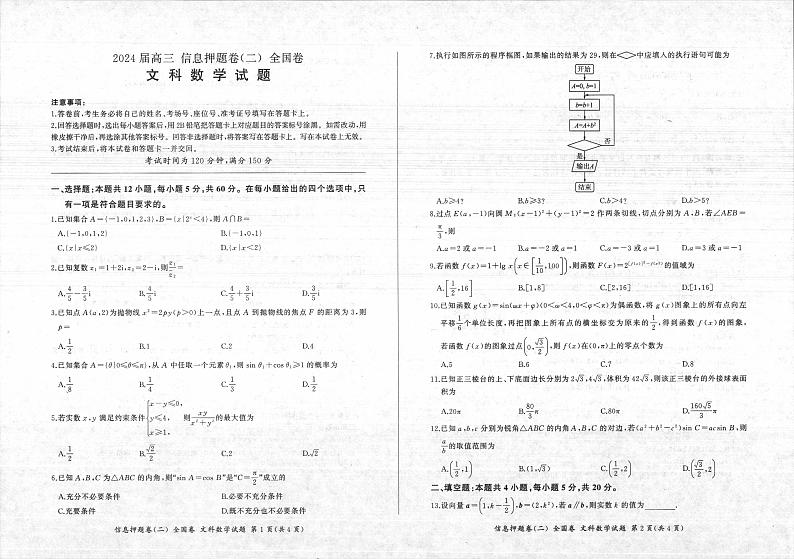 2024届高三 信息押题卷(二) 全国卷
文科数学试题
注意事项:
1.答卷前,考生务必将自己的姓名、考场号、座位号、准考证号填写在答题卡上。
2.回答选择题时,选出每小题答案后,用2B铅笔把答题卡上对应题目的答案标号涂黑。如需改动,用
橡皮擦干净后,再选涂其他答案标号。回答非选择题时,将答案写在答题卡上。写在本试卷上无效。
3.考试结束后,将本试卷和答题卡一并交回。
考试时间为120分钟,满分150分
一、选择题:本题共12小题,每小题5分,共60分。在每小题给出的四个选项中,只
有一项是符合题目要求的。
1.已知集合A={-1,0,1,2,3},B={x|2ˣ<4},则A∩B=
A.{-1,0,1,2} B.{-1,0,1}
C.{x|x≤2} D.{x|x<2}
2.已知复数z₁=1+2i,z₂=2-i,则z₁/z₂=
A.4/5-3/5i B.4/5i C.4/5+3/5i D.3/5i
3.已知点A(a,2)为抛物线x²=2py(p>0)上一点,且点A到抛物线的焦点F的距离为3,则
p=
A.1/2 B.1 C.2 D.4
4.已知集合A={θ|0≤θ≤π},从A中任取一个元素θ₁,则sin θ₁+cos θ₁≥1的概率为
A.1/8 B.1/4 C.1/3 D.1/2
5.若实数x,y满足约束条件{x-y≤0, y≤4, x≥1, 则xy/(x²+y²)的最大值为
A.1/2 B.√2/2 C.2 D.√2
6.已知A,B,C为△ABC的内角,则“sin A=cos B”是“C=π/2”成立的
A.充分不必要条件 B.必要不充分条件
C.充要条件 D.既不充分也不必要条件
信息押题卷(二) 全国卷 文科数学试题 第1页(共4页)
7.执行如图所示的程序框图,如果输出的结果为29,则在◇中应填入的执行语句可能为
开始
A=0,b=1
b=b+1
A=A+b²
否
是
输出A
结束
A.b≥4? B.b≥3? C.b>4? D.b>5?
8.过点E(a,-1)向圆M:(x-1)²+(y-1)²=2作两条切线,切点分别为A,B,若∠AEB=
π/3,则
A.a=2或a=-1 B.a=-2或a=1 C.a=-3或a=1 D.a=3或a=-1
9.若函数f(x)=1+lg x(x∈[1/10,100]),则函数F(x)=2^([f(x)]²-f(x²))的值域为
A.[1/2,16] B.[1,8] C.[2,16] D.[1,16]
10.已知函数g(x)=sin(ωx+φ)(0<ω<4,0<φ<π)为偶函数,将g(x)图象上的所有点向左
平移1/6个单位长度,再把图象上所有点的横坐标变为原来的1/2,得到函数f(x)的图象,
若函数f(x)的图象过点(0,√3/2),则f(x)在(0,π)上的零点个数为
A.5 B.6 C.7 D.8
11.已知正三棱台的上、下底面边长分别为2√3,4√3,体积为42√3,则该正三棱台的外接球表面
积为
A.20π B.80/3π C.80π D.160√5/3π
12.已知a,b,c分别为锐角△ABC的内角A,B,C的对边,若(a²+b²-c²)sin C=acsin B,则
a/b的取值范围为
A.(1/2,1) B.(1,√3) C.(1/2,2) D.(√3/2,2)
二、填空题:本题共4小题,每小题5分,共20分。
13.设向量a=(1,k-1/2),b=(2,k²),若a∥b,则实数k的值为______.
信息押题卷(二) 全国卷 文科数学试题 第2页(共4页)